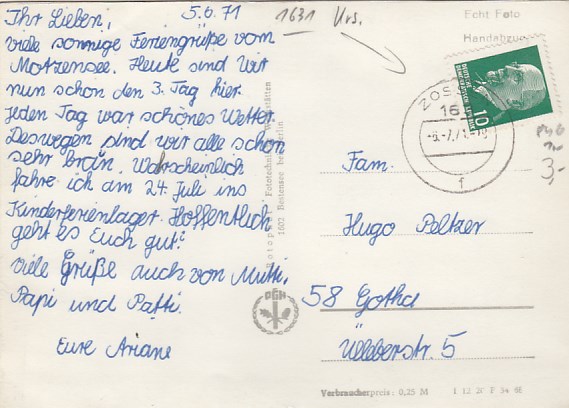 Ihr Lieben! 5.6.71
viele sonnige Feriengrüße vom
Motzensee. Heute sind wir
nun schon den 3. Tag hier.
Jeden Tag war schönes Wetter.
Deswegen sind wir alle schon
sehr braun. Wahrscheinlich
fahre ich am 24. Juli ins
Kinderferienlager. Hoffentlich
geht es Euch gut?
viele Grüße auch von Mutti,
Papi und Patti.
Eure Ariane
1631 Urs.
Echt Foto
Handabzug
DEUTSCHE DEMOKRATISCHE REPUBLIK
10
ZOSSEN
-6.-7.71.-
f
3,-
Fam.
Hugo Peltzer
58 Gotha
Ülleberstr. 5
1602 Bestensee bei Berlin
PGH
Verbraucherpreis: 0,25 M